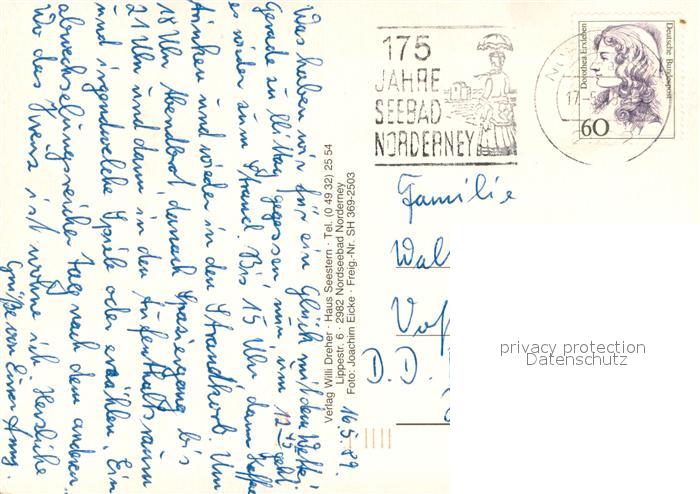 Was haben wir für ein Glück mit dem Wetter!
Gerade zu Mittag gegessen, nun, um 12 45 geht
es wieder zum Strand. Bis 15 Uhr, dann Kaffee
trinken und wieder in den Strandkorb. Um
18 Uhr Abendbrot, danach Spaziergang bis
21 Uhr und dann in den Aufenthaltsraum
und irgendwelche Spiele oder erzählen. Ein
abwechselungsreicher Tag nach dem anderen.
Wo das Kreuz ist wohne ich. Herzliche
Grüße von Eurer Anny.
16.5.89
Verlag Willi Dreher · Haus Seestern · Tel. (0 49 32) 25 54
Lippestr. 6 · 2982 Nordseebad Norderney
Foto: Joachim Eicke · Freig.-Nr. SH 369-2503
175
JAHRE
SEEBAD
NORDERNEY
Dorothea Erxleben
Deutsche Bundespost
60
Familie
Wal
D.D.
privacy protection
Datenschutz